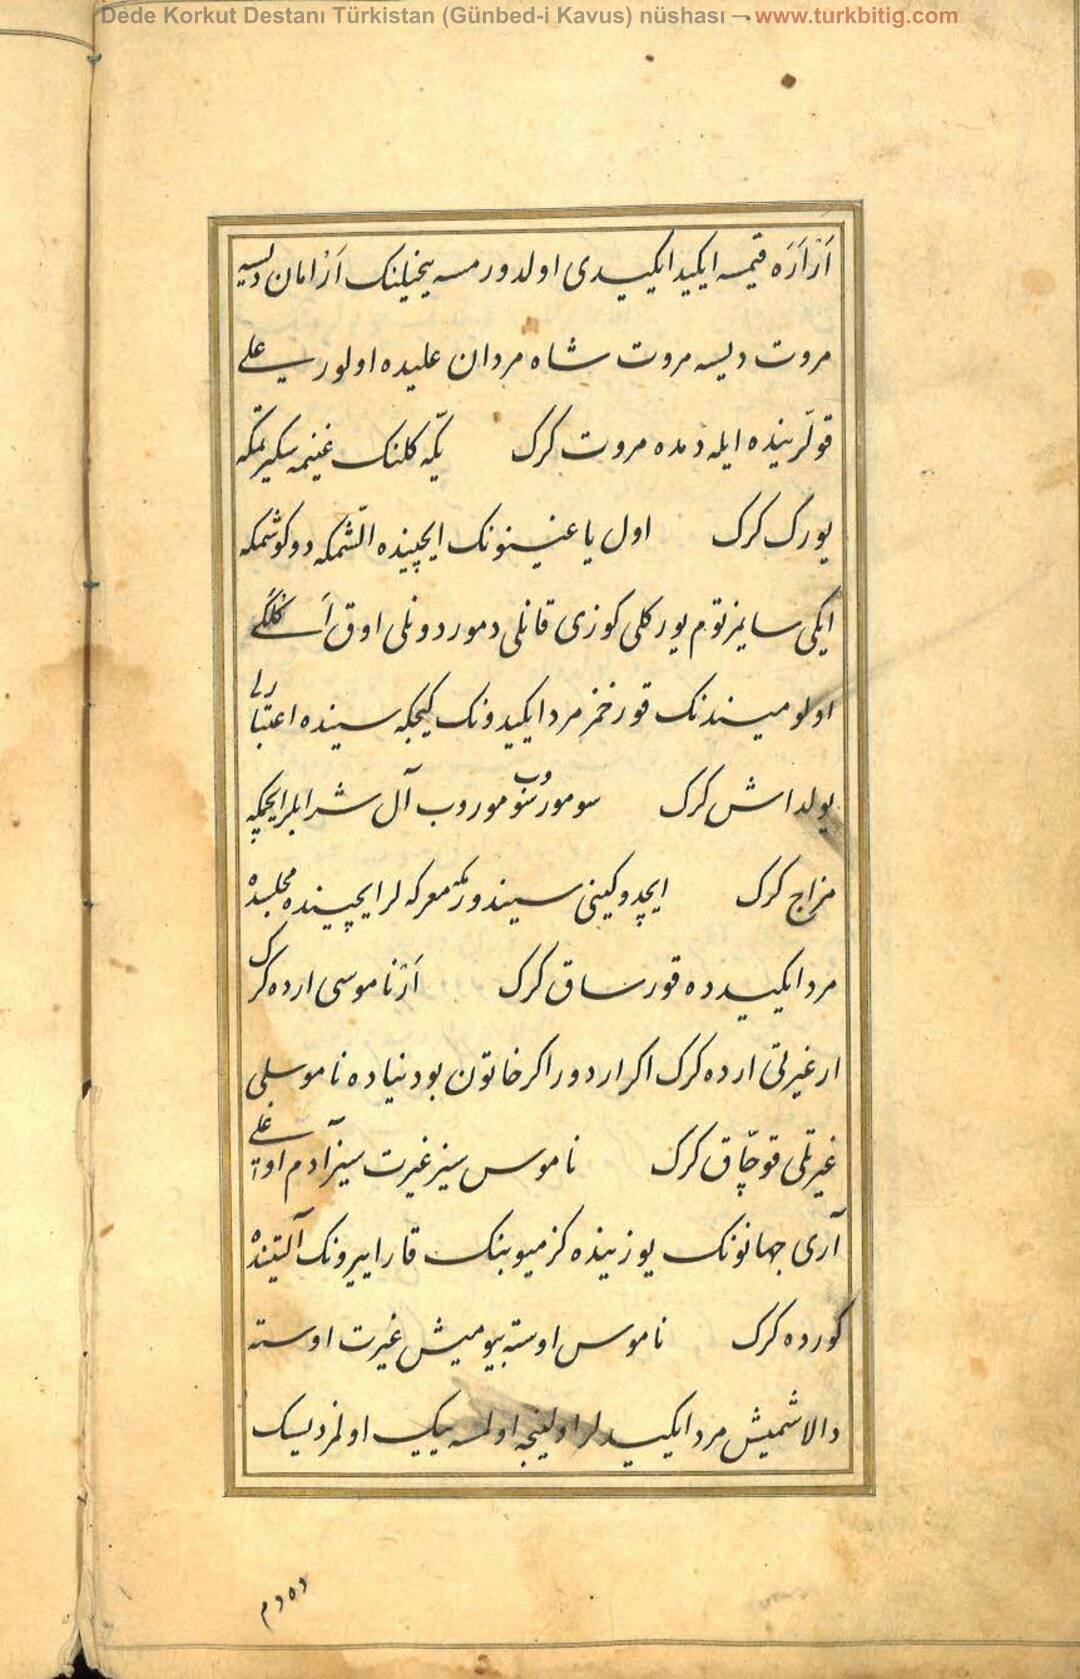 Dede Korkut Destanı Türkistan (Günbed-i Kavus) nüshası – www.turkbitig.com
اَرْ اَرَه قیمسه ایکید ایکیدی اولدورمسه ییخیلنک اَرْ امان دیسه
مروت دیسه مروت شاه مردان علیده اولور علی
قولّرینده ایله دمده مروت کرک یکّه کلنک غنیمه سکیرتمکه
یورک کرک اول یاغینونک ایچینده الّشمکه دوکوشمکه
ایکی سایمز توم یورکلی کوزی قانلی دموردونلی اوق اَتسه
اولومیندنک قورخمز مرد ایکیدونک کیجکه سینده اعتبارلی
یولداش کرک سومورب آل شرابلر ایچمکه
مزاج کرک ایچدوکینی سیندورمکه معرکه لر ایچینده مجلسده
مرد ایکیدده قورساق کرک اَرْ ناموسی ارده کرک
ار غیرتی ارده کرک اکر اردور اکر خاتون بو دنیاده ناموسلی
غیرتلی قوچّاق کرک ناموس سیز غیرت سیز آدم اوغلی
آری جهانونک یوزینده کزمیوبنک قارا ییرونک آلتینده
کورده کرک ناموس اوسته بیومیش غیرت اوسته
دالاشمیش مرد ایکیدلر اولینجه اولسه ییک اولمز دیسک
دەدم